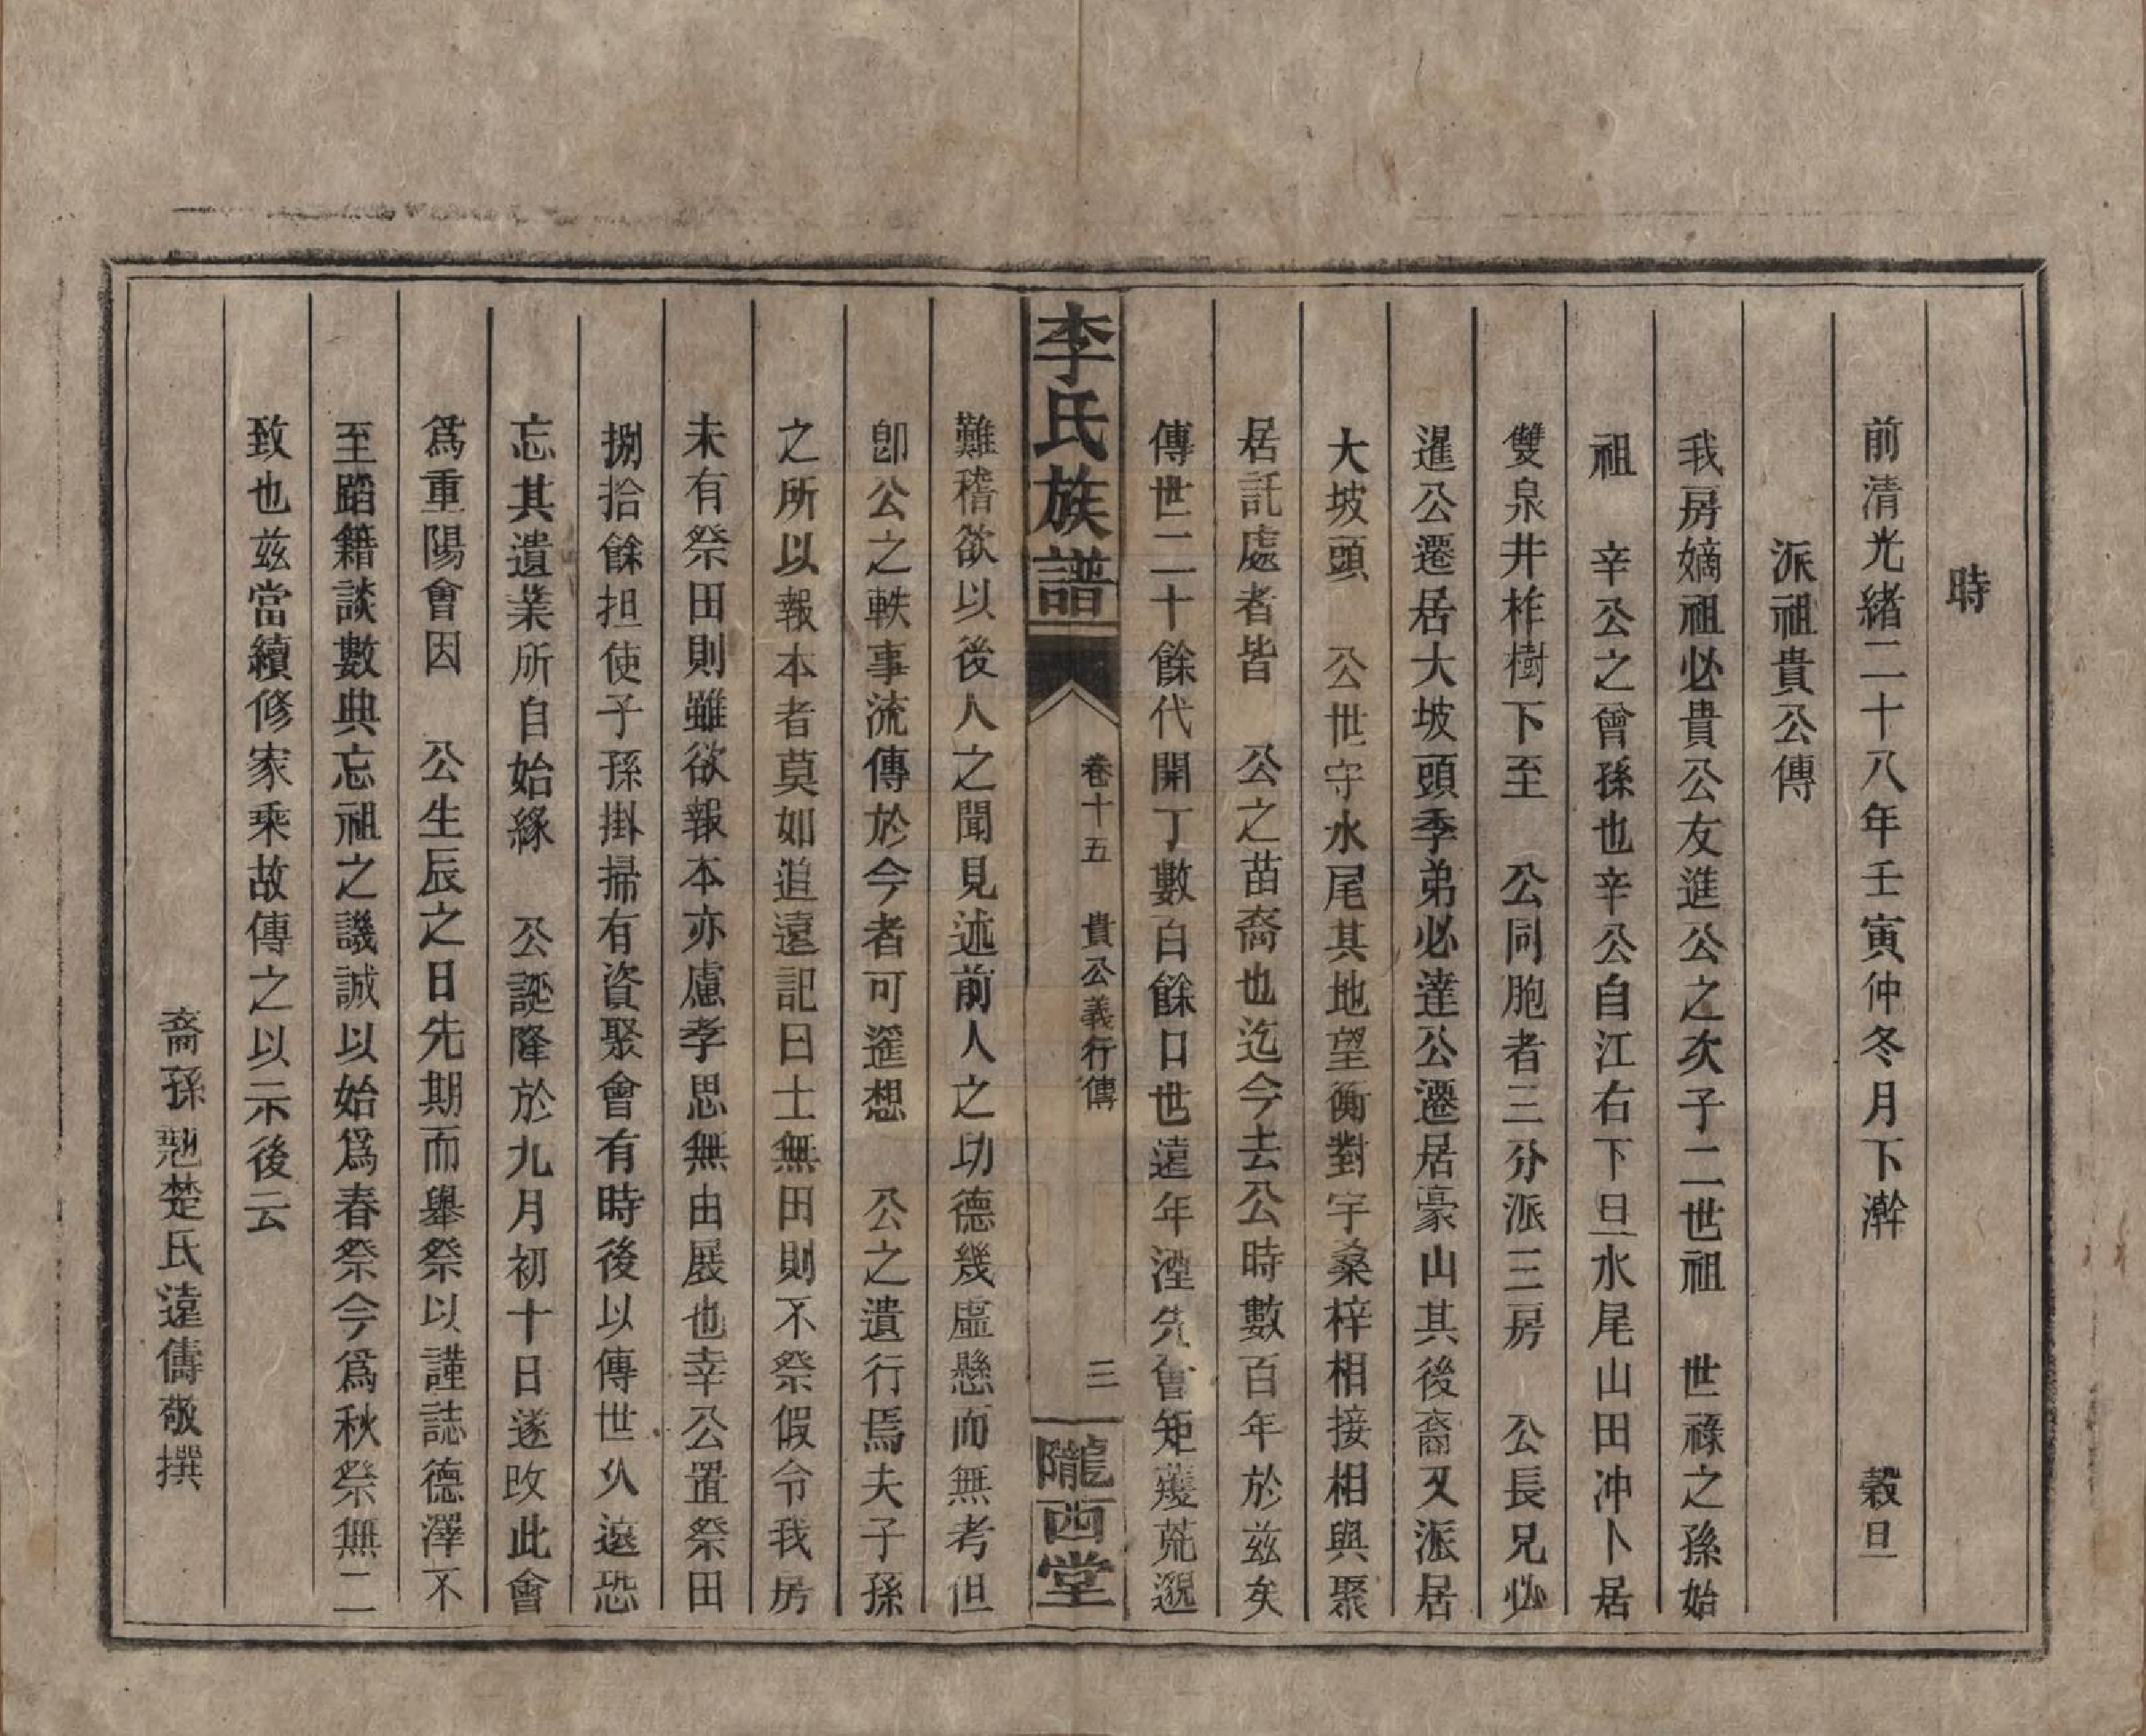 時
前清光緒二十八年壬寅仲冬月下澣 穀旦
派祖貴公傳
我房嫡祖必貴公友進公之次子二世祖 世祿之孫始
祖 辛公之曾孫也辛公自江右下旦水尾山田冲卜居
雙泉井柞樹下至 公同胞者三分派三房 公長兄必
暹公遷居大坡頭季弟必達公遷居豪山其後裔又派居
大坡頭 公世守水尾其地望衡對宇桑梓相接相與聚
居託處者皆 公之苗裔也迄今去公時數百年於玆矣
傳世二十餘代開丁數百餘口世遠年湮先會矩矱荒邈
李氏族譜 卷十五 貴公義行傳 三 隴西堂
難稽欲以後人之聞見述前人之功德幾虛懸而無考但
卽公之軼事流傳於今者可遐想 公之遺行焉夫子孫
之所以報本者莫如追遠記曰士無田則不祭假令我房
未有祭田則雖欲報本亦慮孝思無由展也幸公置祭田
捌拾餘担使子孫掛掃有資聚會有時後以傳世久遠恐
忘其遺業所自始緣 公誕降於九月初十日遂改此會
爲重陽會因 公生辰之日先期而舉祭以謹誌德澤不
至蹈籍談數典忘祖之譏誠以始爲春祭今爲秋祭無二
致也玆當續修家乘故傳之以示後云
裔孫 楚氏遠儔敬撰